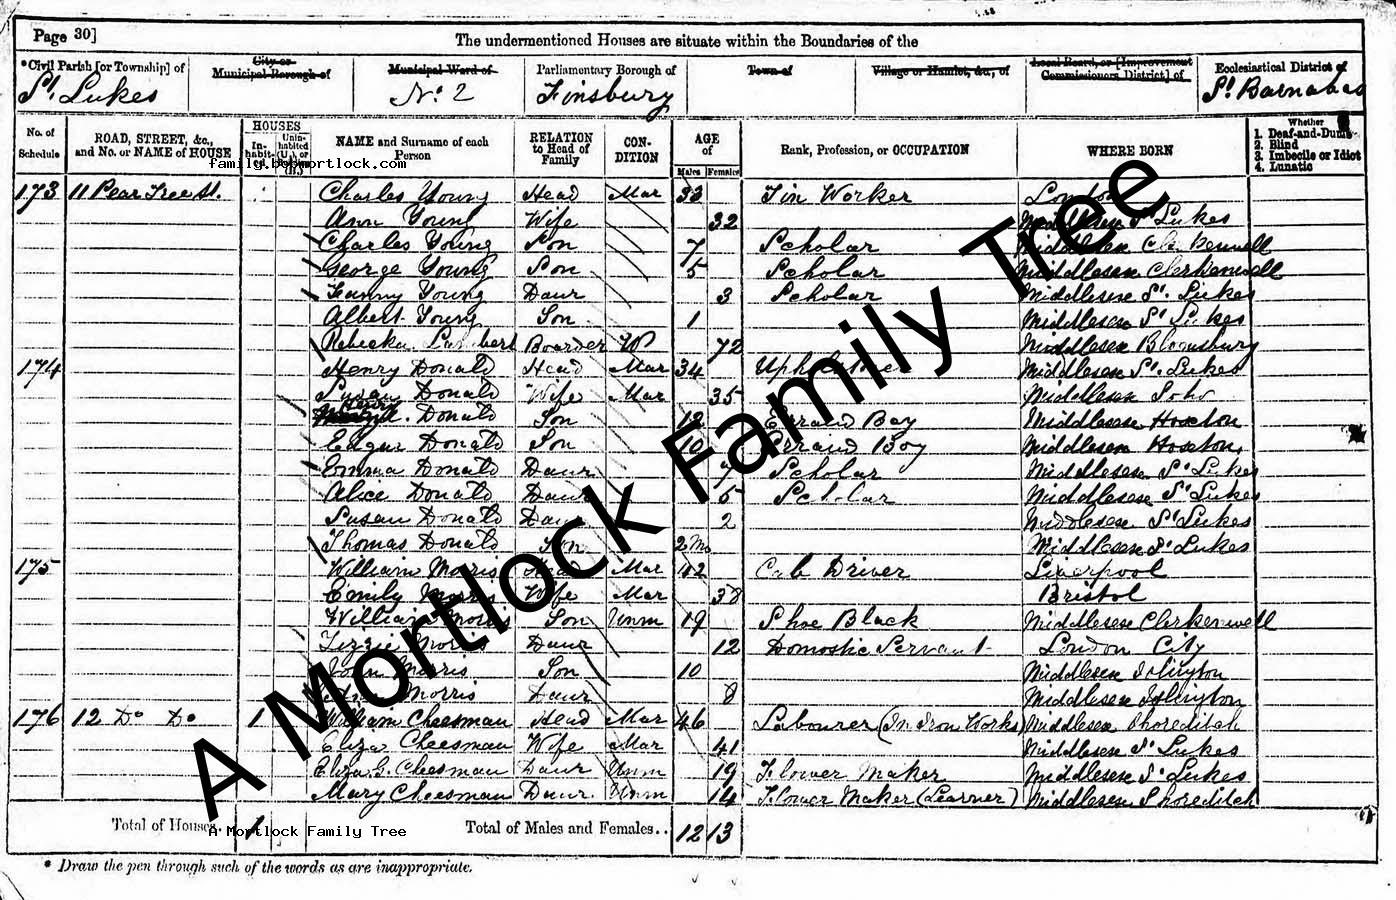 Page 30]
The undermentioned Houses are situate within the Boundaries of the
*Civil Parish [or Township] of
City or Municipal Borough of
Municipal Ward of
Parliamentary Borough of
Town of
Village or Hamlet, &c., of
Local Board, or [Improvement Commissioners District] of
Ecclesiastical District of
St. Lukes
No. 2
Finsbury
St Barnabas
No. of Schedule
ROAD, STREET, &c., and No. or NAME of HOUSE
HOUSES
In-habit-ed
Unin-habited (U.), or (B.)
NAME and Surname of each Person
RELATION to Head of Family
CON-DITION
AGE of
Males
Females
Rank, Profession, or OCCUPATION
WHERE BORN
Whether
1. Deaf-and-Dumb
2. Blind
3. Imbecile or Idiot
4. Lunatic
family.bobmortlock.com
173 11 Pear Tree St. Charles Young Head Mar 33 Tin Worker London
Ann Young Wife 32 Middlesex St Lukes
Charles Young Son 7 Scholar Middlesex Clerkenwell
George Young Son 5 Scholar Middlesex Clerkenwell
Fanny Young Daur 3 Scholar Middlesex St. Lukes
Albert Young Son 1 Middlesex St Lukes
Rebecka Lambert Boarder W 72 Middlesex Bloomsbury
174 Henry Donald Head Mar 34 Upholsterer Middlesex St Lukes
Susan Donald Wife Mar 35 Middlesex Soho
Donald Son 12 Errand Boy Middlesex Hoxton
Edgar Donald Son 10 Errand Boy Middlesex Hoxton
Emma Donald Daur 7 Scholar Middlesex St Lukes
Alice Donald Daur 5 Scholar Middlesex St Lukes
Susan Donald Daur 2 Middlesex St Lukes
Thomas Donald Son 2 Mo Middlesex St Lukes
175 William Morris Head Mar 42 Cab Driver Liverpool
Emily Morris Wife Mar 38 Bristol
William Morris Son Unm 19 Shoe Black Middlesex Clerkenwell
Lizzie Morris Daur 12 Domostic Servant London City
John Morris Son 10 Middlesex Islington
Morris Daur 8 Middlesex Islington
176 12 Do Do 1 William Cheesman Head Mar 46 Labourer (In Iron Works) Middlesex Shoreditch
Eliza Cheesman Wife Mar 41 Middlesex St Lukes
Eliza G. Cheesman Daur Unm 19 Flower Maker Middlesex St Lukes
Mary Cheesman Daur Unm 14 Flower Maker (Learner) Middlesex Shoreditch
Total of Houses.. 1
Total of Males and Females.. 12 13
A Mortlock Family Tree
A Mortlock Family Tree
* Draw the pen through such of the words as are inappropriate.